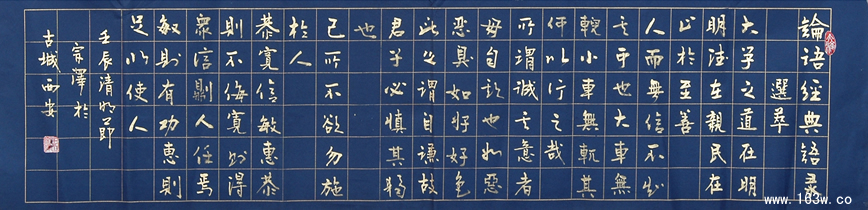 論語經典語錄
選萃
大学之道在明
明德在親民在
止於至善
人而無信不知
其可也大車無
輗小車無軏其
何以行之哉
所謂誠其意者
毋自欺也如惡
惡臭如好好色
此之謂自謙故
君子必慎其獨
也
己所不欲勿施
於人
恭寬信敏惠恭
則不侮寬則得
衆信則人任焉
敏則有功惠則
足以使人
壬辰清明節
宗澤於
古城西安
www.163w.co